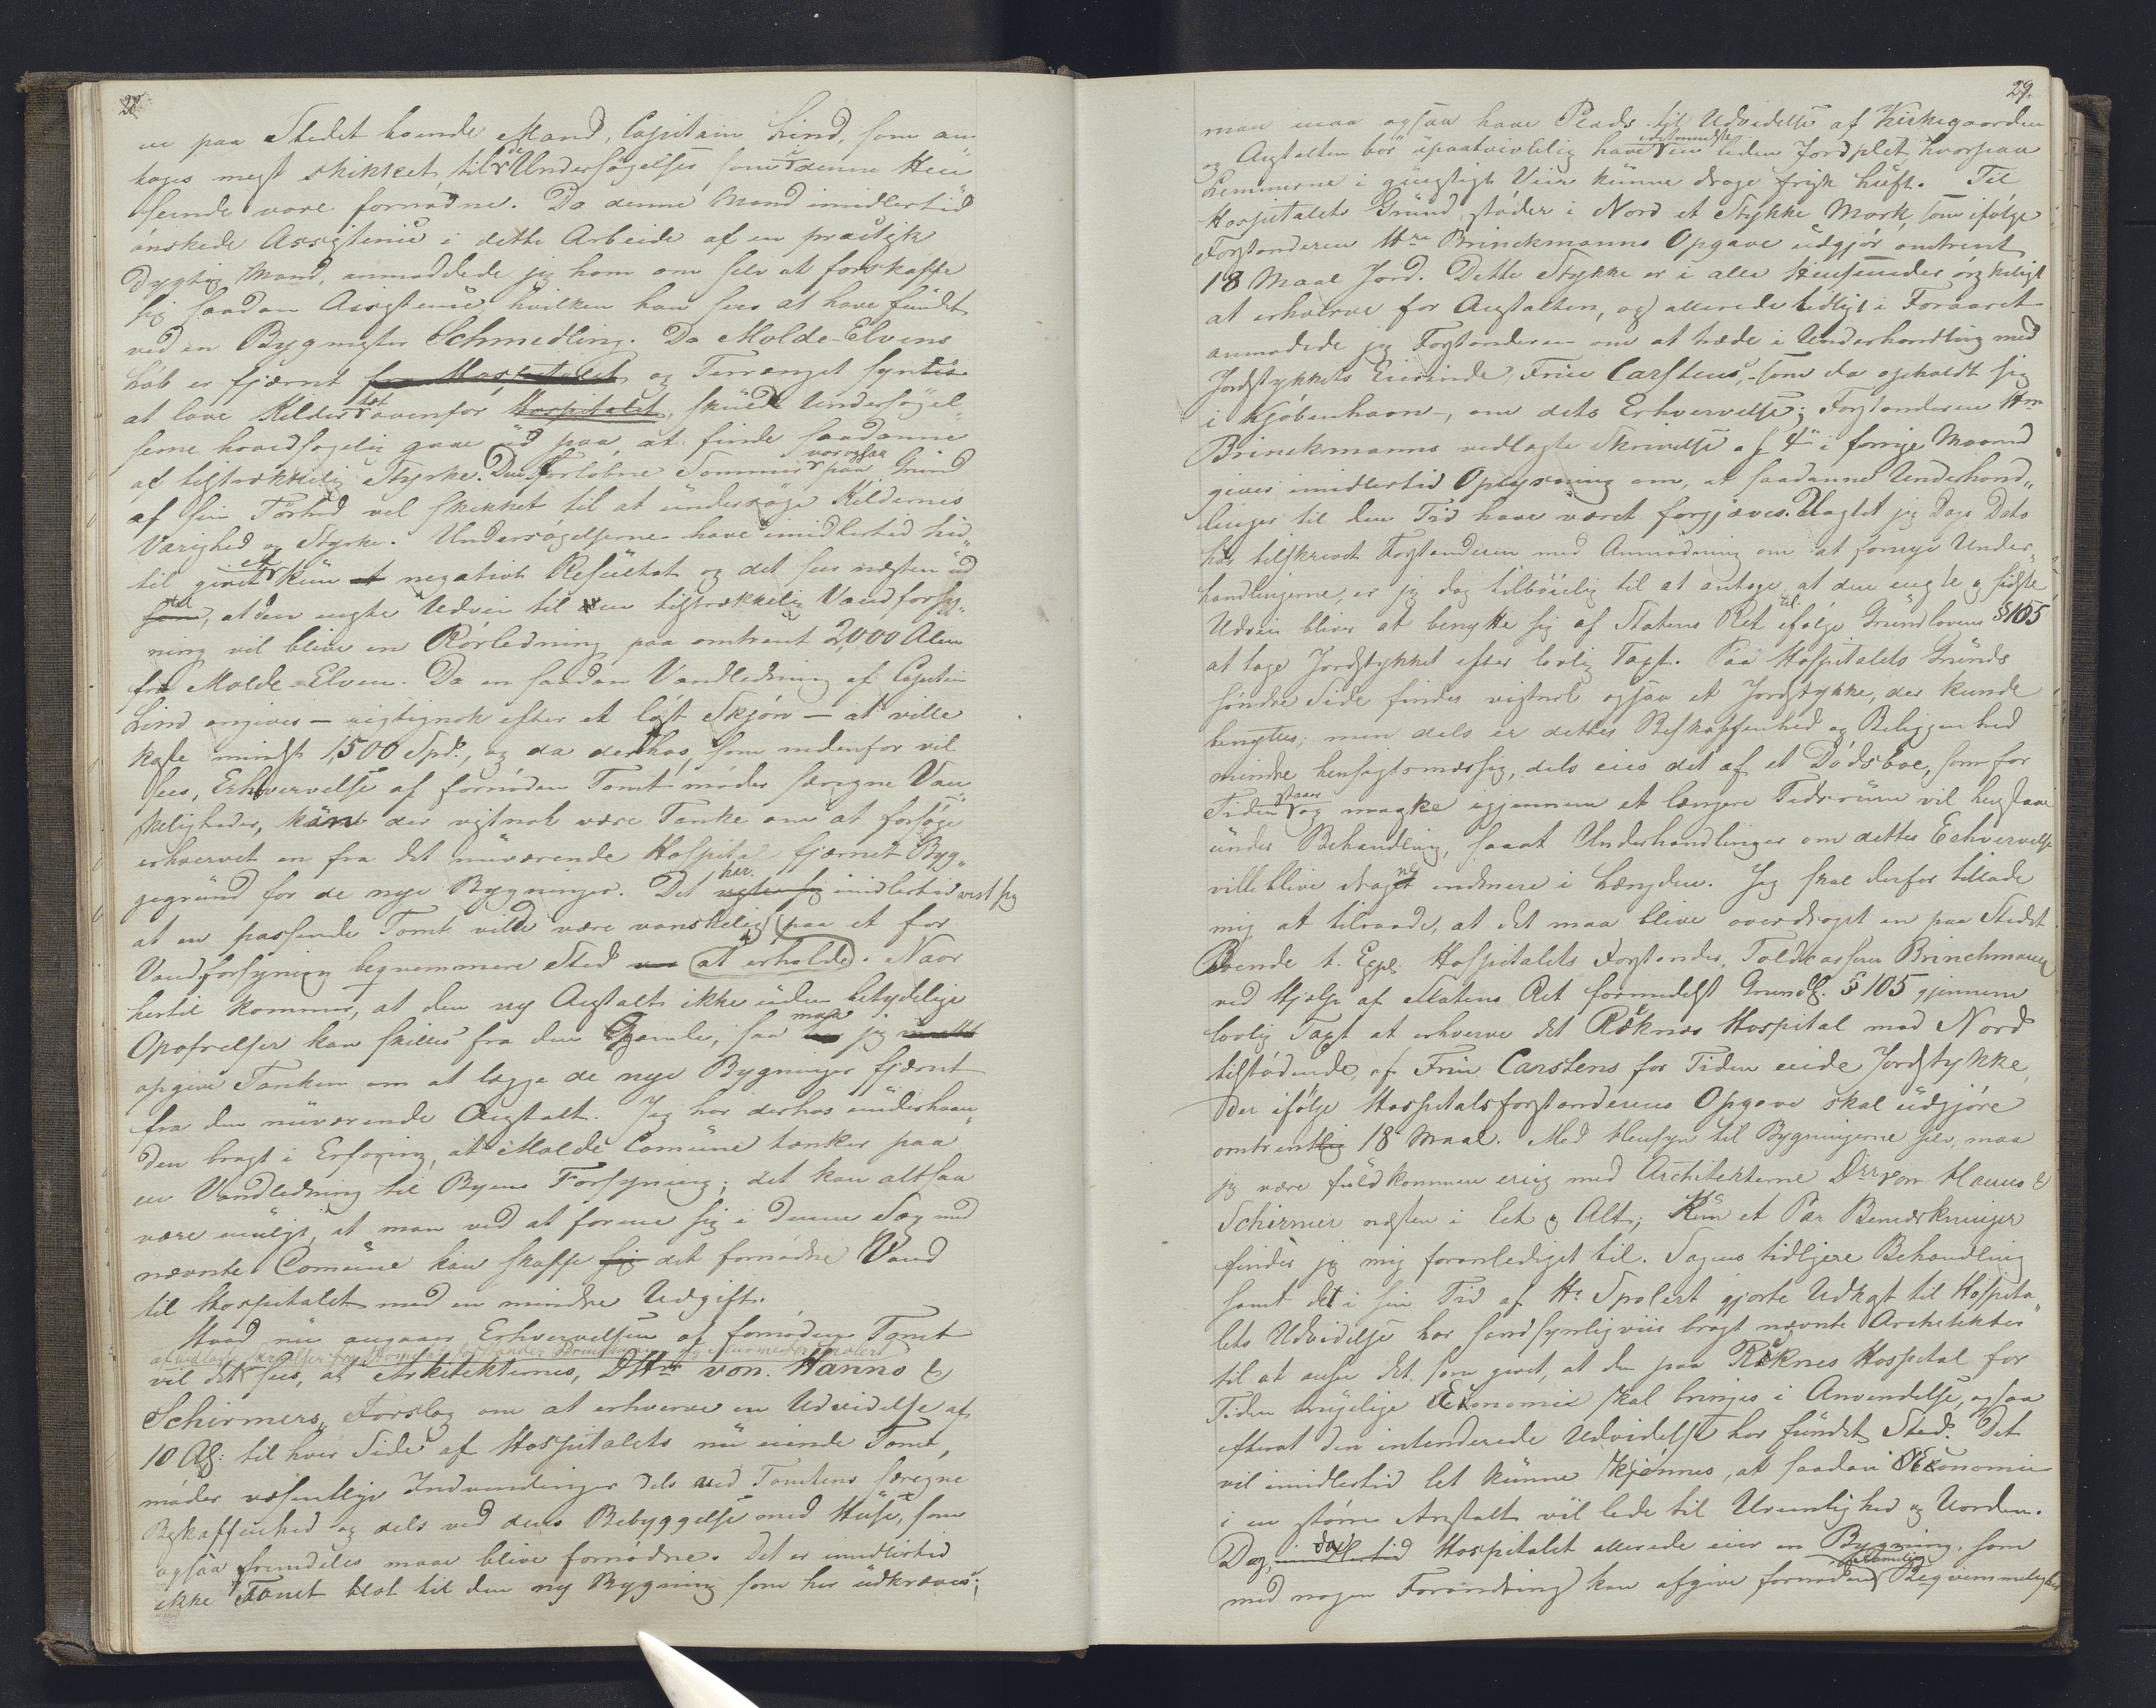 22.
en paa Stedet boende Mand, Capitain Lind, som an-
toges mest skikket til de Undersøgelser som i denne Hen-
seende vare fornødne. Da denne Mand imidlertid
ønskede Assistence i dette Arbeide af en practisk
dygtig Mand, anmodede jeg ham om selv at forskaffe
sig saadan Assistence, hvilken han sees at have fundet
ved en Bygmester Schmedling. Da Molde-Elvens
Løb er fjærnt fra Hospitalet og Terrænget syntes
at love Kilder tæt ovenfor Hospitalet, skulde Undersøgel-
serne hovedsagelig gaae ud paa, at finde saadanne
af tilstrækkelig Styrke. Den forløbne Sommer var ogsaa paa Grund
af sin Tørhed vel skikket til at undersøge Kildernes
Varighed og Styrke. Undersøgelserne have imidlertid hid-
til givet kun et negativt Resultat og det sees næsten ud
til, at den eneste Udvei til en tilstrækkelig Vandforsy-
ning vil blive en Rørledning paa omtrent 2,000 Alen
fra Molde-Elven. Da en saadan Vandledning af Capitain
Lind angives – rigtignok efter et løst Skjøn – at ville
koste mindst 1,500 Spd., og da derhos, som nedenfor vil
sees, Erhvervelse af fornøden Tomt møder særegne Van-
skeligheder, kunde der vistnok være Tanke om at forsøge
erhvervet en fra det nuværende Hospital fjærnet Byg-
gegrund for de nye Bygninger. Det har imidlertid vist sig
at en passende Tomt vilde være vanskelig at erholde paa et for
Vandforsyning beqvemmere Sted. Naar
hertil kommer, at den ny Anstalt ikke uden betydelige
Opofrelser kan skilles fra den Gamle, saa maa jeg
opgive Tanken om at lægge de nye Bygninger fjærnt
fra den nuværende Anstalt. Jeg har derhos underhaan-
den bragt i Erfaring, at Molde Comune tænker paa
en Vandledning til Byens Forsyning; det kan altsaa
være muligt, at man ved at forene sig i denne Sag med
nævnte Comune kan skaffe sig det fornødne Vand
til Hospitalet med en mindre Udgift.
Hvad nu angaaer Erhvervelsen af fornøden Tomt
vil det af vedlagte Skrivelser fra Hospitalsforstander Brinchmann og Murmester Spolert
sees, at Arkitekternes, DHrr von Hanno &
Schirmers, Forslag om at erhverve en Udvidelse af
10 Al: til hver Side af Hospitalets nu eiende Tomt,
møder væsentlige Indvendinger dels ved Tomtens særegne
Beskaffenhed og dels ved dens Bebyggelse med Huse, som
ogsaa fremdeles maae blive fornødne. Det er imidlertid
ikke Tomt blot til den ny Bygning som her udkræves;
29.
man maa ogsaa have Plads til Udvidelse af Kirkegaarden
og Anstalten bør upaatvivlelig have idetmindste en liden Jordplet, hvorpaa
Lemmerne i gunstigt Veir kunne drage frisk Luft. Til
Hospitalets Grund støder i Nord et Stykke Mark, som ifølge
Forstanderen Hrr Brinckmanns Opgave udgjør omtrent
18 Maal Jord. Dette Stykke er i alle Henseender ønskeligt
at erhverve for Anstalten, og allerede tidligt i Foraaret
anmodede jeg Forstanderen om at træde i Underhandling med
Jordstykkets Eierinde, Frue Carstens, – som da opholdt sig
i Kjøbenhavn –, om dets Erhvervelse; Forstanderen Hrr
Brinckmanns vedlagte Skrivelse af 4de i forrige Maaned
giver imidlertid Oplysning om, at saadanne Underhand-
linger til den Tid have været forgjæves. Uagtet jeg Dags Dato
har tilskrevet Forstanderen med Anmodning om at fornye Under-
handlingerne, er jeg dog tilbøielig til at antage, at den eneste og sidste
Udvei bliver at benytte sig af Statens Ret til ifølge Grundlovens § 105
at tage Jordstykket efter lovlig Taxt. Paa Hospitalets Grunds
søndre Side findes vistnok ogsaa et Jordstykke, der kunde
benyttes; men dels er dettes Beskaffenhed og Beliggenhed
mindre hensigtsmæssig, dels eies det af et Dødsboe, som for
Tiden staaer og maaske igjennem et længere Tidsrum vil henstaae
under Behandling, saaat Underhandlinger om dettes Erhvervelse
ville blive dragne endmere i Langdrag. Jeg skal derfor tillade
mig at tilraade, at det maa blive overdraget en paa Stedet
Boende t. Expl. Hospitalets Forstander, Toldcasserer Brinchmann
ved Hjælp af Statens Ret formedelst Grundl. § 105 gjennem
lovlig Taxt at erhverve det Reknes Hospital mod Nord
tilstødende, af Frue Carstens for Tiden eiede Jordstykke,
der ifølge Hospitalsforstanderens Opgave skal udgjøre
omtrent 18 Maal. Med Hensyn til Bygningerne selv, maa
jeg være fuldkommen enig med Architekterne DHrr von Hanno &
Schirmer næsten i Et og Alt; Kun et Par Bemærkninger
finder jeg mig foranlediget til. Sagens tidligere Behandling
samt det i sin Tid af Hr Spolert gjorte Udkast til Hospita-
lets Udvidelse har sandsynligviis bragt nævnte Architekter
til at ansee det som givet, at den paa Reknes Hospital for
Tiden brugelige Economie skal bringes i Anvendelse, ogsaa
efterat den intenderede Udvidelse har fundet Sted. Det
vil imidlertid let kunne skjønnes, at saadan Economie
i en større Anstalt vil lede til Ureenlighed og Uorden.
Dog, da Hospitalet allerede eier en Bygning, som
med nogen Forandring kan afgive fornøden Beqvemmelighed